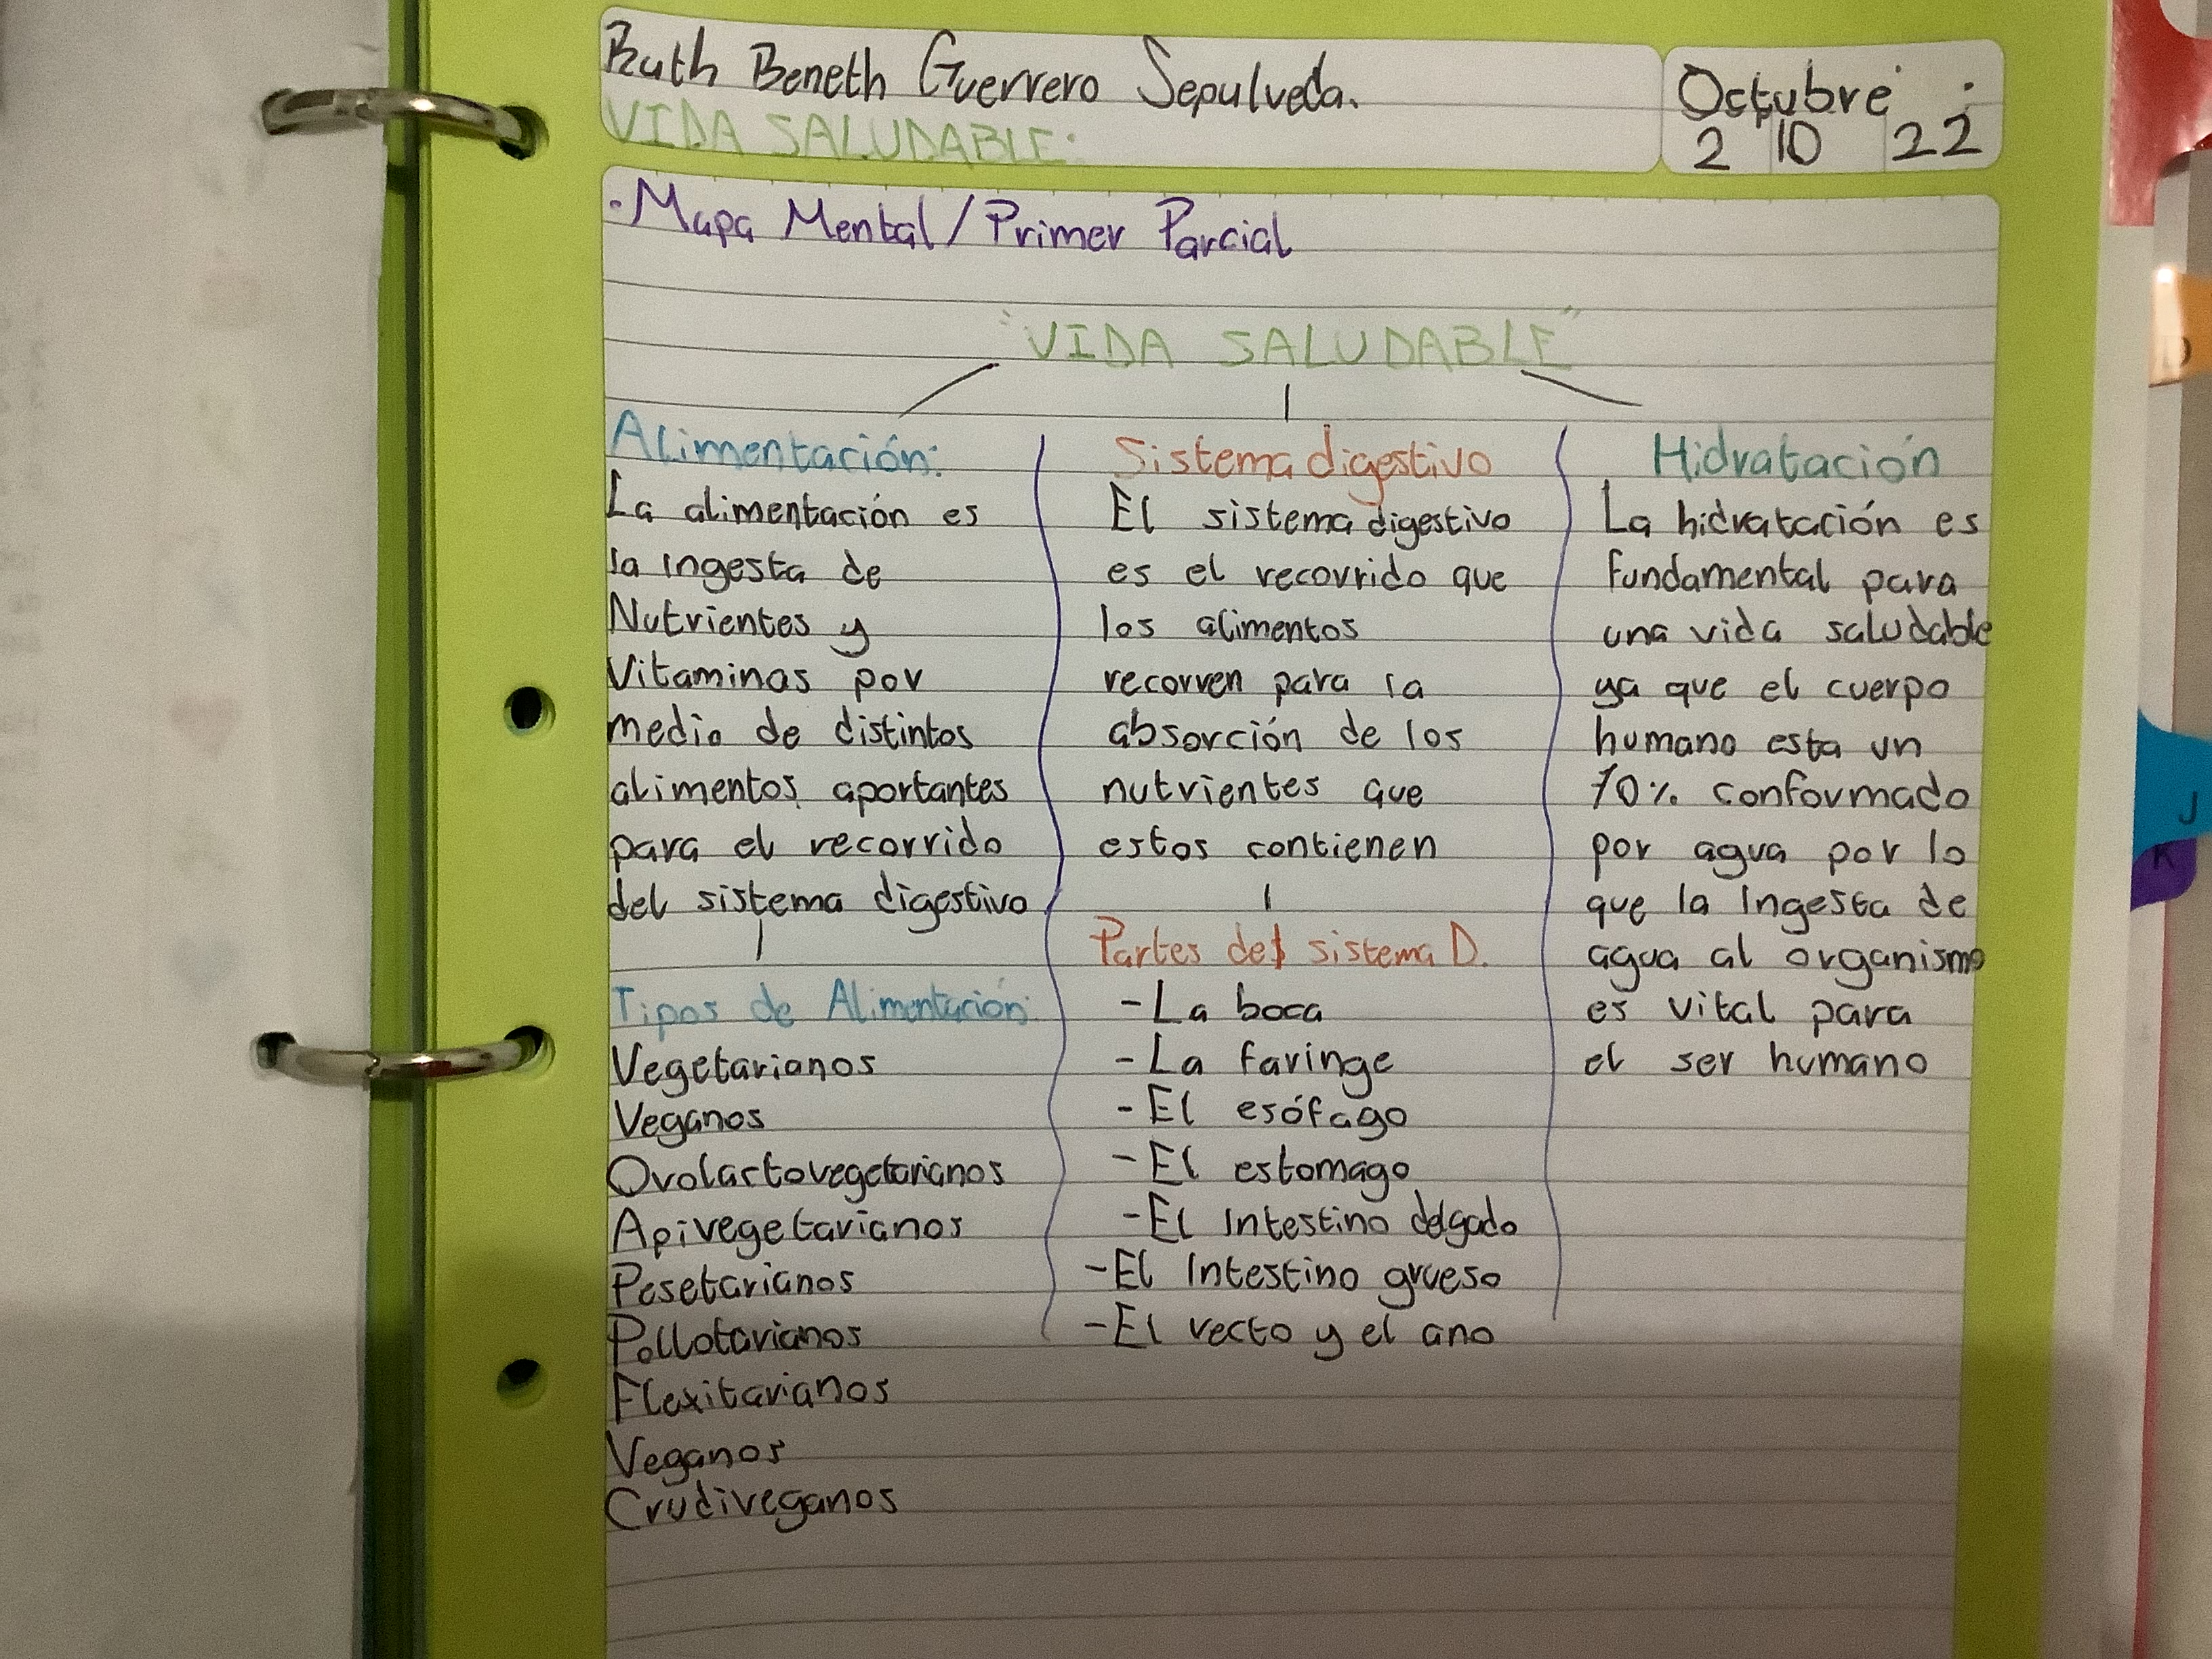 Ruth Beneth Guerrero Sepulveda.
VIDA SALUDABLE:
Octubre
2 10 22
·Mapa Mental / Primer Parcial
"VIDA SALUDABLE"
Alimentación:
La alimentación es
la ingesta de
Nutrientes y
Vitaminas por
medio de distintos
alimentos aportantes
para el recorrido
del sistema digestivo
Tipos de Alimentación:
Vegetarianos
Veganos
Ovolactovegetarianos
Apivegetarianos
Pesetarianos
Pollotarianos
Flexitarianos
Veganos
Crudiveganos
Sistema digestivo
El sistema digestivo
es el recorrido que
los alimentos
recorren para la
absorción de los
nutrientes que
estos contienen
Partes del sistema D.
-La boca
-La faringe
-El esófago
-El estomago
-El Intestino delgado
-El Intestino grueso
-El recto y el ano
Hidratación
La hidratación es
fundamental para
una vida saludable
ya que el cuerpo
humano esta un
70% conformado
por agua por lo
que la Ingesta de
agua al organismo
es vital para
el ser humano
J
K